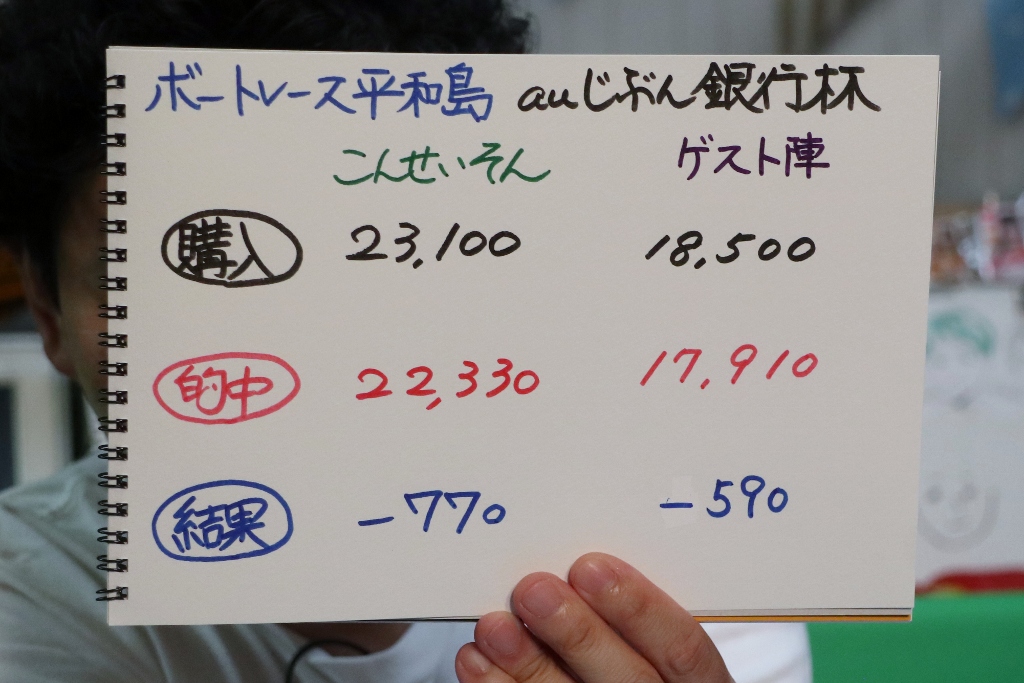 ボートレース平和島 auじぶん銀行杯
こんせいそん ゲスト陣
購入 23,100 18,500
的中 22,330 17,910
結果 -770 -590